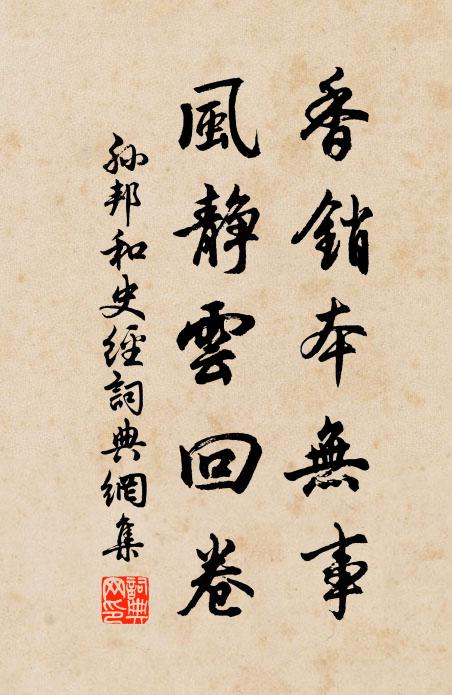 香銷本無事
風静雲回卷
孙邦和史經詞典網集
詞典网印